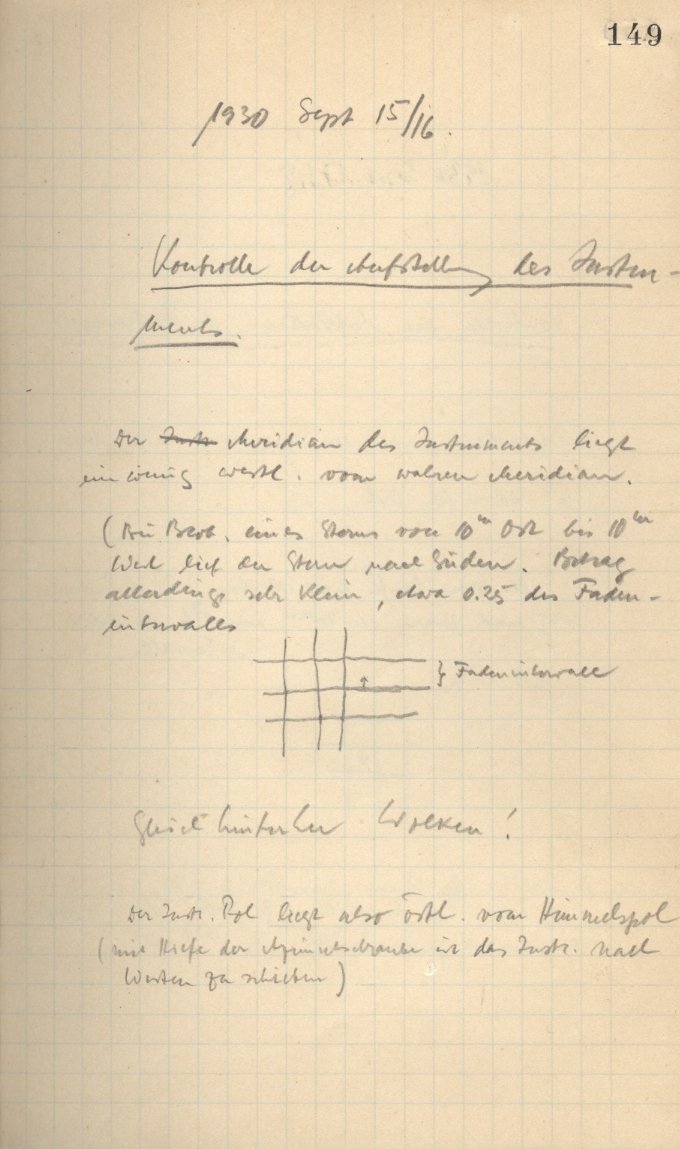 149
1930 Sept 15/16.
Kontrolle der Aufstellung des Instru-
ments.
Der Instr Meridian des Instruments liegt
ein wenig westl. vom wahren Meridian.
(Bei Beob. eines Sterns von 10ᵐ Ost bis 10ᵐ
West lief der Stern nach Süden. Betrag
allerdings sehr klein, etwa 0.25 des Faden-
intervalles
} Fadenintervall
Gleich hinterher Wolken!
Der Instr. Pol liegt also östl. vom Himmelspol
(mit Hilfe der Azimutschraube ist das Instr. nach
Westen zu schieben)